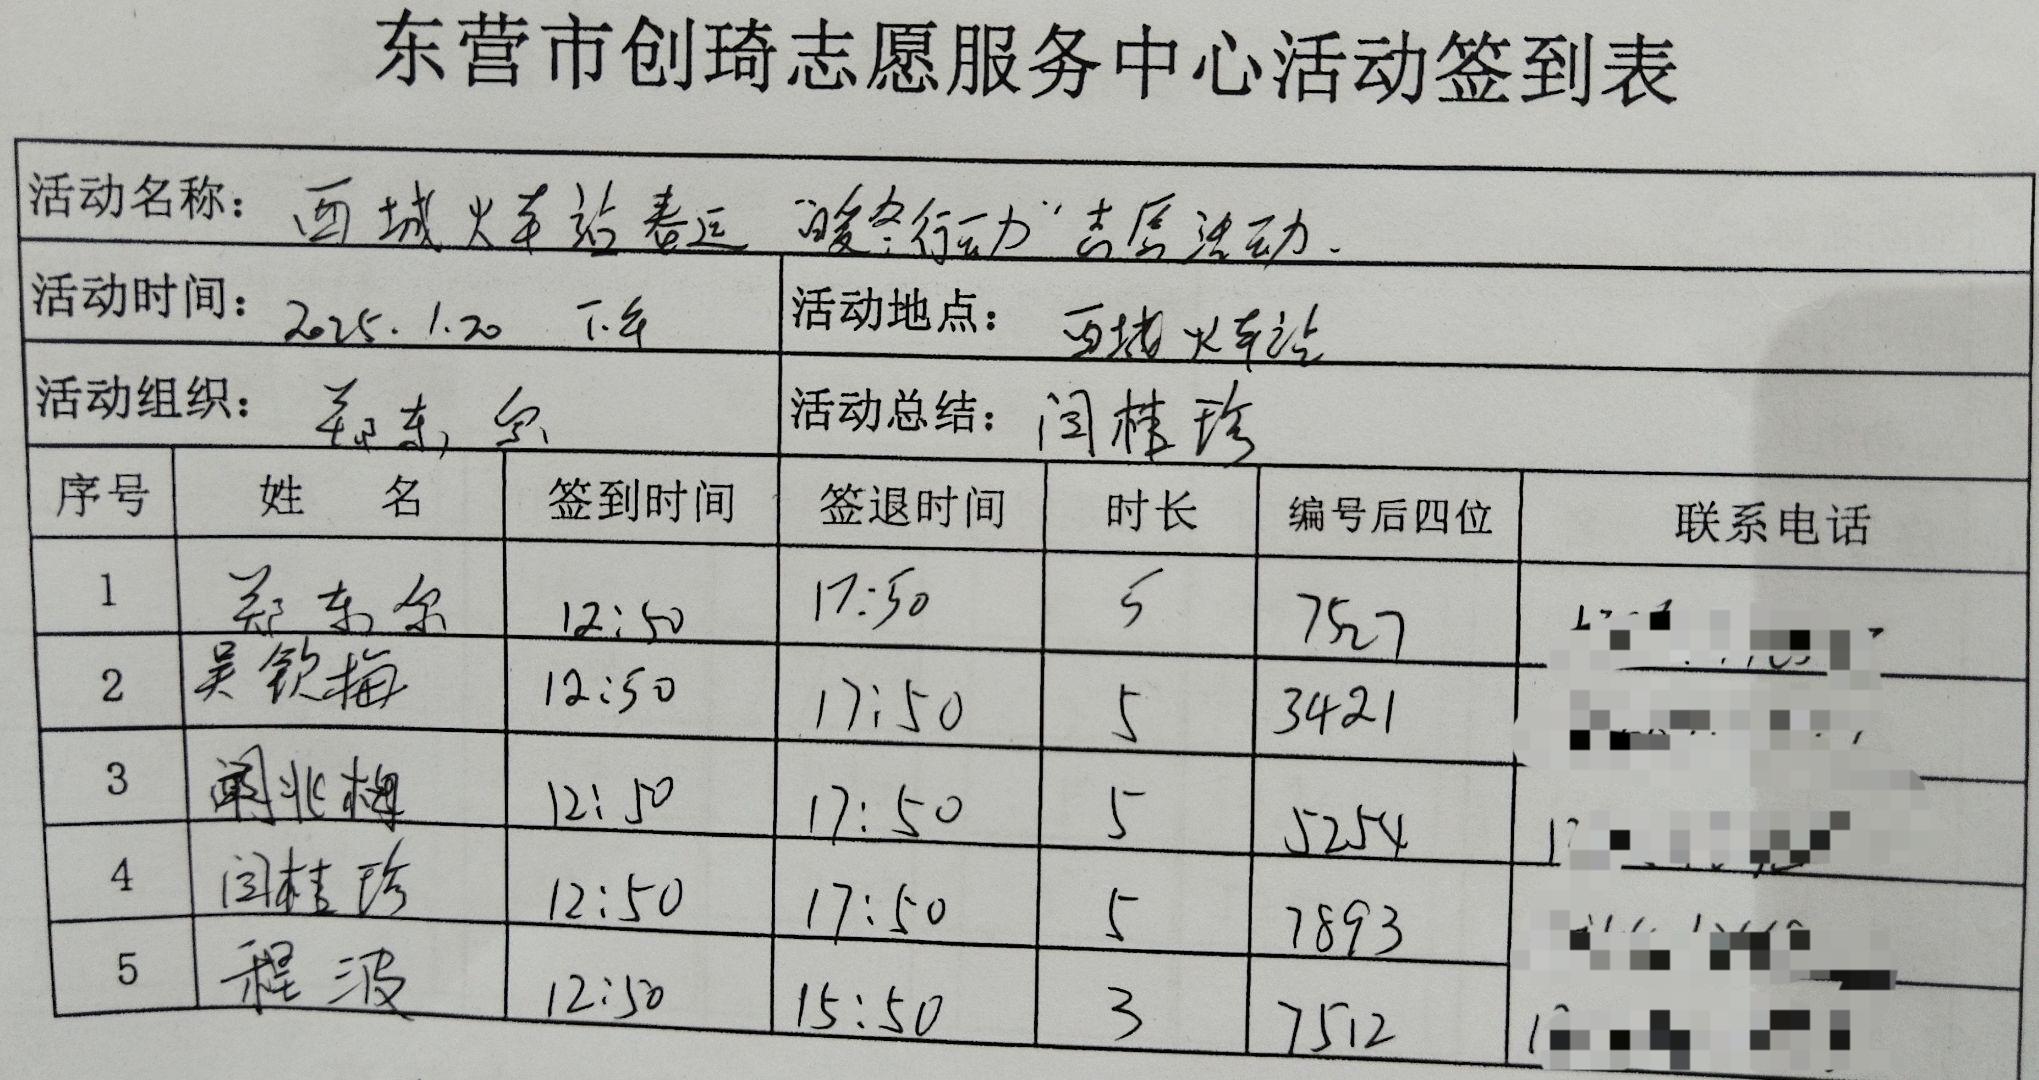 东营市创琦志愿服务中心活动签到表
活动名称: 西城火车站春运“暖冬行动”志愿活动.
活动时间: 2025.1.20 下午 活动地点: 西城火车站
活动组织: 郑东尔 活动总结: 闫桂珍
序号 姓 名 签到时间 签退时间 时长 编号后四位 联系电话
1 郑东尔 12:50 17:50 5 7527
2 吴钦梅 12:50 17:50 5 3421
3 兆梅 12:50 17:50 5 5254
4 闫桂珍 12:50 17:50 5 7893
5 程波 12:50 15:50 3 7512